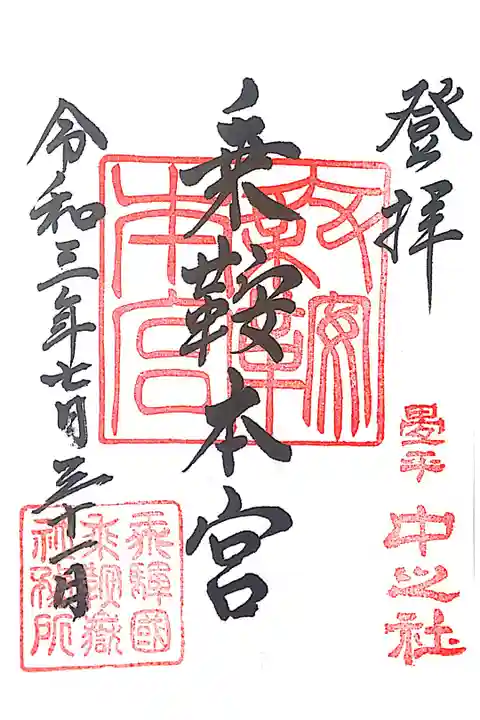 登拝
畳平
中之社
乗鞍本宮
乗鞍本宮
令和三年七月三十一日
飛騨國
乗鞍嶽
社務所